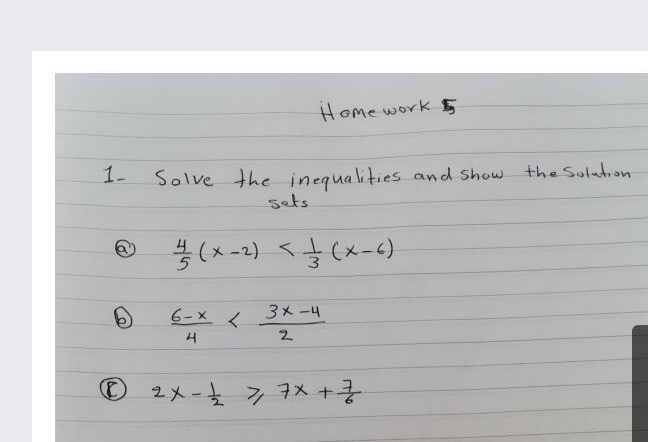 Homework 5
1- Solve the inequalities and show the Solution
sets
ⓐ 4/5 (x-2) < 1/3 (x-6)
ⓑ 6-x/4 < 3x-4/2
ⓒ 2x-1/2 ≥ 7x+7/6